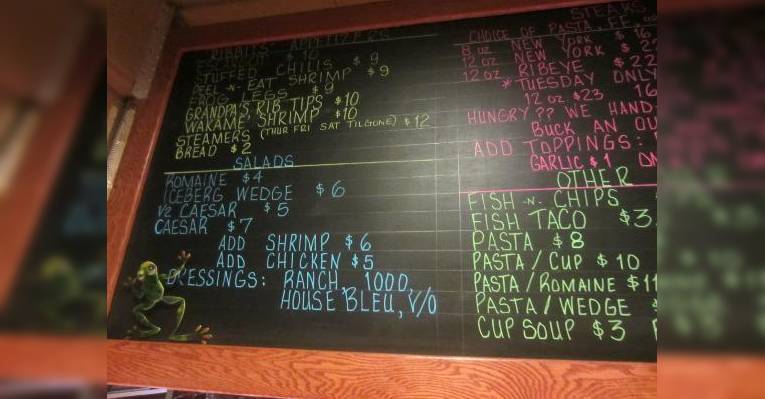 APPETIZERS
STUFFED CHILIS $9
PEEL -N- EAT SHRIMP $9
FROG LEGS $9
GRANDPA'S RIB TIPS $10
WAKAME SHRIMP $10
STEAMERS (THUR FRI SAT TILGONE) $12
BREAD $2
SALADS
ROMAINE $4
ICEBERG WEDGE $6
1/2 CAESAR $5
CAESAR $7
ADD SHRIMP $6
ADD CHICKEN $5
DRESSINGS: RANCH, 1000,
HOUSE BLEU, V/O
STEAKS
CHOICE OF PASTA, FF,
8 oz NEW YORK $16
12 oz NEW YORK $2
12 oz RIBEYE $22
*TUESDAY ONLY
12 oz $23 16
HUNGRY?? WE HAND
BUCK AN OU
ADD TOPPINGS:
GARLIC $1
OTHER
FISH -N- CHIPS
FISH TACO $3
PASTA $8
PASTA / CUP $10
PASTA / ROMAINE $11
PASTA / WEDGE
CUP SOUP $3